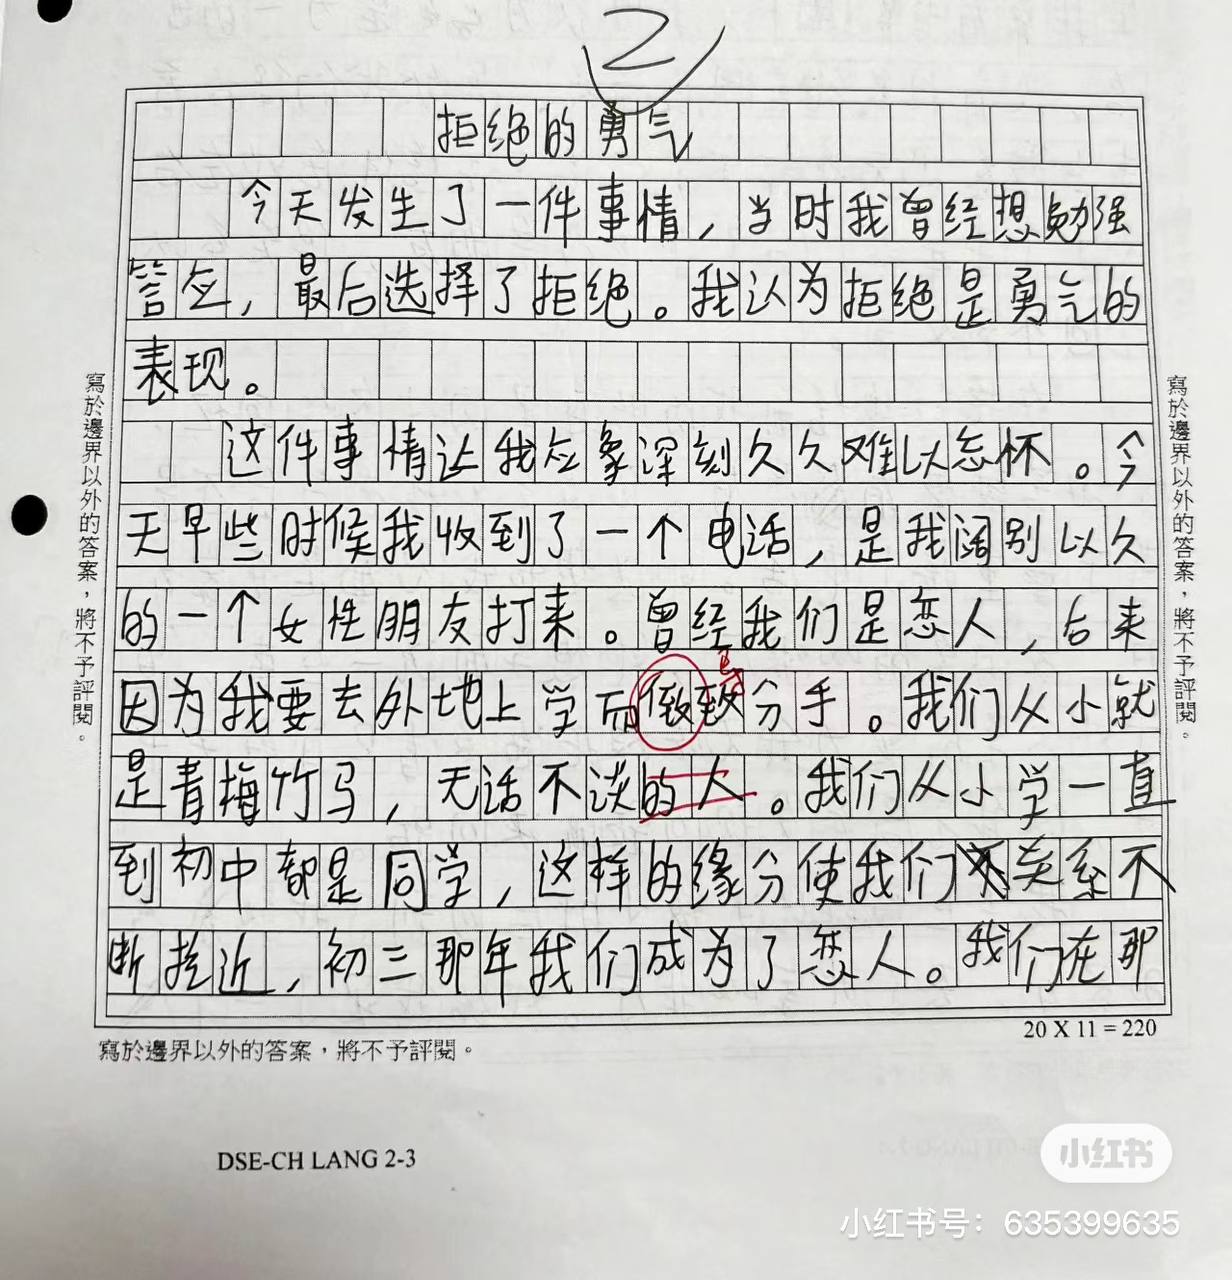 2
拒绝的勇气
今天发生了一件事情，当时我曾经想勉强
答应，最后选择了拒绝。我认为拒绝是勇气的
表现。
这件事情让我应象深刻久久难以忘怀。今
天早些时候我收到了一个电话，是我阔别以久
的一个女性朋友打来。曾经我们是恋人，后来
因为我要去外地上学而做致分手。我们从小就
是青梅竹马，无话不谈的人。我们从小学一直
到初中都是同学，这样的缘分使我们关系不
断拉近，初三那年我们成为了恋人。我们在那
寫於邊界以外的答案，將不予評閱。
寫於邊界以外的答案，將不予評閱。
20 X 11 = 220
寫於邊界以外的答案，將不予評閱。
DSE-CH LANG 2-3
小红书
小红书号：635399635